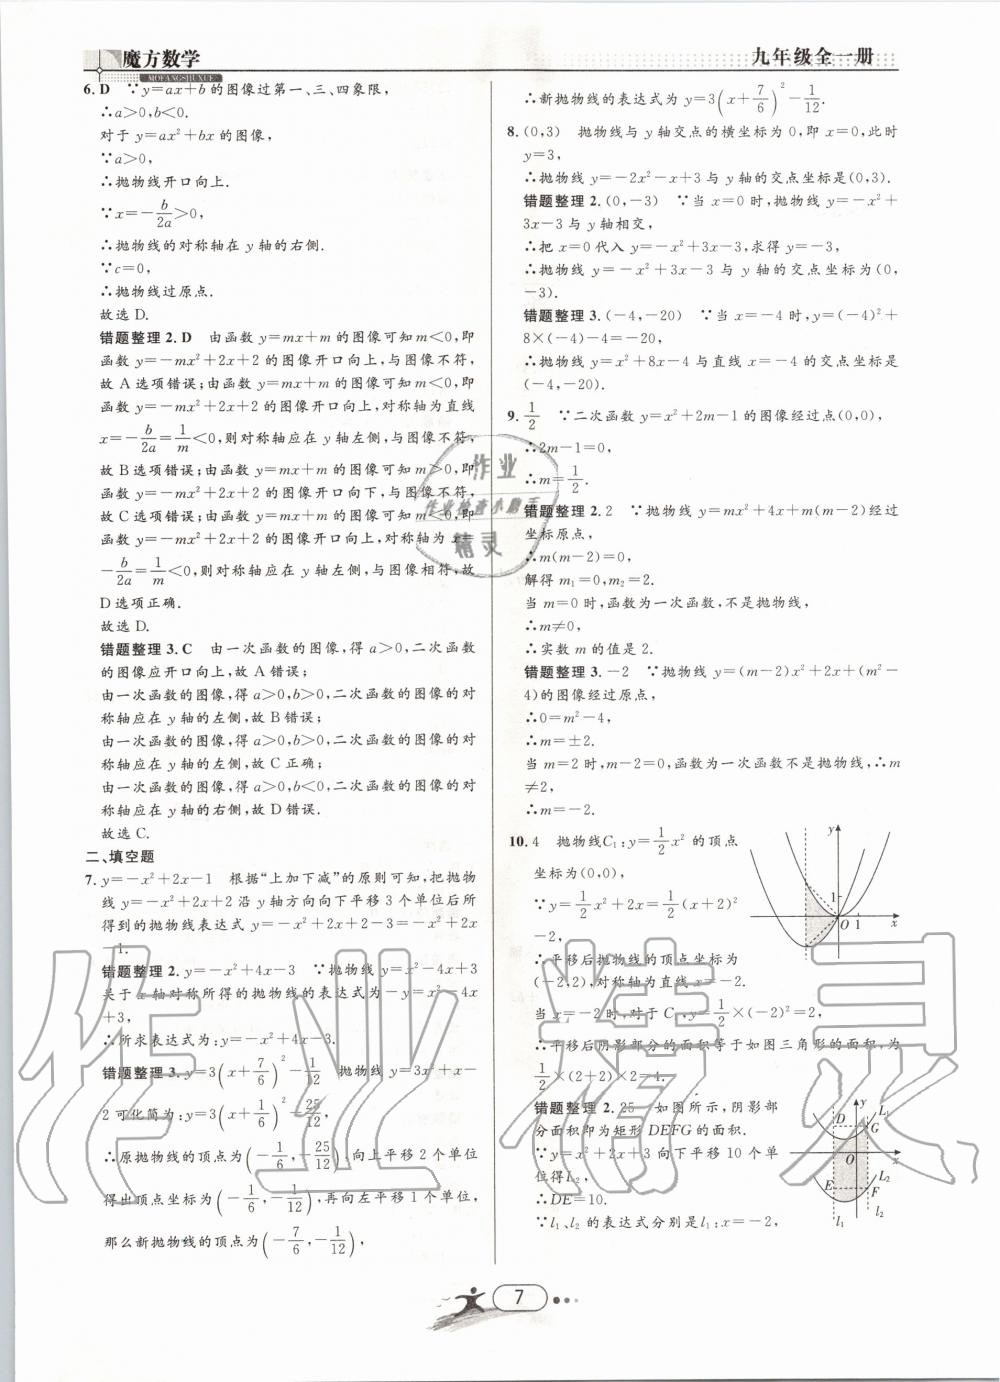 魔方数学
MOFANGSHUXUE
九年级全一册
6. D ∵y=ax+b 的图像过第一、三、四象限,
∴a>0,b<0.
对于 y=ax²+bx 的图像,
∵a>0,
∴抛物线开口向上.
∵x=-b/2a>0,
∴抛物线的对称轴在 y 轴的右侧.
∵c=0,
∴抛物线过原点.
故选 D.
错题整理 2. D 由函数 y=mx+m 的图像可知 m<0,即
函数 y=-mx²+2x+2 的图像开口向上,与图像不符,
故 A 选项错误;由函数 y=mx+m 的图像可知 m<0,即
函数 y=-mx²+2x+2 的图像开口向上,对称轴为直线
x=-b/2a=1/m<0,则对称轴应在 y 轴左侧,与图像不符,
故 B 选项错误;由函数 y=mx+m 的图像可知 m>0,即
函数 y=-mx²+2x+2 的图像开口向下,与图像不符,
故 C 选项错误;由函数 y=mx+m 的图像可知 m<0,即
函数 y=-mx²+2x+2 的图像开口向上,对称轴为 x=
-b/2a=1/m<0,则对称轴应在 y 轴左侧,与图像相符,故
D 选项正确.
故选 D.
错题整理 3. C 由一次函数的图像,得 a>0,二次函数
的图像应开口向上,故 A 错误;
由一次函数的图像,得 a>0,b>0,二次函数的图像的对
称轴应在 y 轴的左侧,故 B 错误;
由一次函数的图像,得 a>0,b>0,二次函数的图像的对
称轴应在 y 轴的左侧,故 C 正确;
由一次函数的图像,得 a>0,b<0,二次函数的图像的对
称轴应在 y 轴的右侧,故 D 错误.
故选 C.
二、填空题
7. y=-x²+2x-1 根据“上加下减”的原则可知,把抛物
线 y=-x²+2x+2 沿 y 轴方向向下平移 3 个单位后所
得到的抛物线表达式 y=-x²+2x+2-3=-x²+2x
-1.
错题整理 2. y=-x²+4x-3 ∵抛物线 y=x²-4x+3
关于 x 轴对称所得的抛物线的表达式为-y=x²-4x
+3,
∴所求表达式为:y=-x²+4x-3.
错题整理 3. y=3(x+7/6)²-1/12 抛物线 y=3x²+x-
2 可化简为:y=3(x+1/6)²-25/12,
∴原抛物线的顶点为(-1/6,-25/12).向上平移 2 个单位
得出顶点坐标为(-1/6,-1/12),再向左平移 1 个单位,
那么新抛物线的顶点为(-7/6,-1/12),
∴新抛物线的表达式为 y=3(x+7/6)²-1/12.
8. (0,3) 抛物线与 y 轴交点的横坐标为 0,即 x=0,此时
y=3,
∴抛物线 y=-2x²-x+3 与 y 轴的交点坐标是(0,3).
错题整理 2. (0,-3) ∵当 x=0 时,抛物线 y=-x²+
3x-3 与 y 轴相交,
∴把 x=0 代入 y=-x²+3x-3,求得 y=-3,
∴抛物线 y=-x²+3x-3 与 y 轴的交点坐标为(0,
-3).
错题整理 3. (-4,-20) ∵当 x=-4 时,y=(-4)²+
8×(-4)-4=-20,
∴抛物线 y=x²+8x-4 与直线 x=-4 的交点坐标是
(-4,-20).
9. 1/2 ∵二次函数 y=x²+2m-1 的图像经过点(0,0),
∴2m-1=0,
∴m=1/2.
错题整理 2. 2 ∵抛物线 y=mx²+4x+m(m-2)经过
坐标原点,
∴m(m-2)=0,
解得 m₁=0,m₂=2.
当 m=0 时,函数为一次函数,不是抛物线,
∴m≠0,
∴实数 m 的值是 2.
错题整理 3. -2 ∵抛物线 y=(m-2)x²+2x+(m²-
4)的图像经过原点,
∴0=m²-4,
∴m=±2.
当 m=2 时,m-2=0,函数为一次函数不是抛物线,∴m
≠2,
∴m=-2.
10. 4 抛物线C₁:y=1/2x² 的顶点
坐标为(0,0),
∵y=1/2x²+2x=1/2(x+2)²
-2,
∴平移后抛物线的顶点坐标为
(-2,2),对称轴为直线 x=-2.
当 x=-2 时,对于 C₁,y=1/2×(-2)²=2,
∴平移后阴影部分的面积等于如图三角形的面积,为
1/2×(2+2)×2=4.
y
1
O
1
x
错题整理 2. 25 如图所示,阴影部
分面积即为矩形 DEFG 的面积.
∵y=x²+2x+3 向下平移 10 个单
位得L₂,
∴DE=10.
∵l₁、l₂ 的表达式分别是 l₁:x=-2,
y
L₁
D
G
O
x
L₂
E
F
l₁
l₂
7
作业
作业检查小助手
精灵
作业精灵